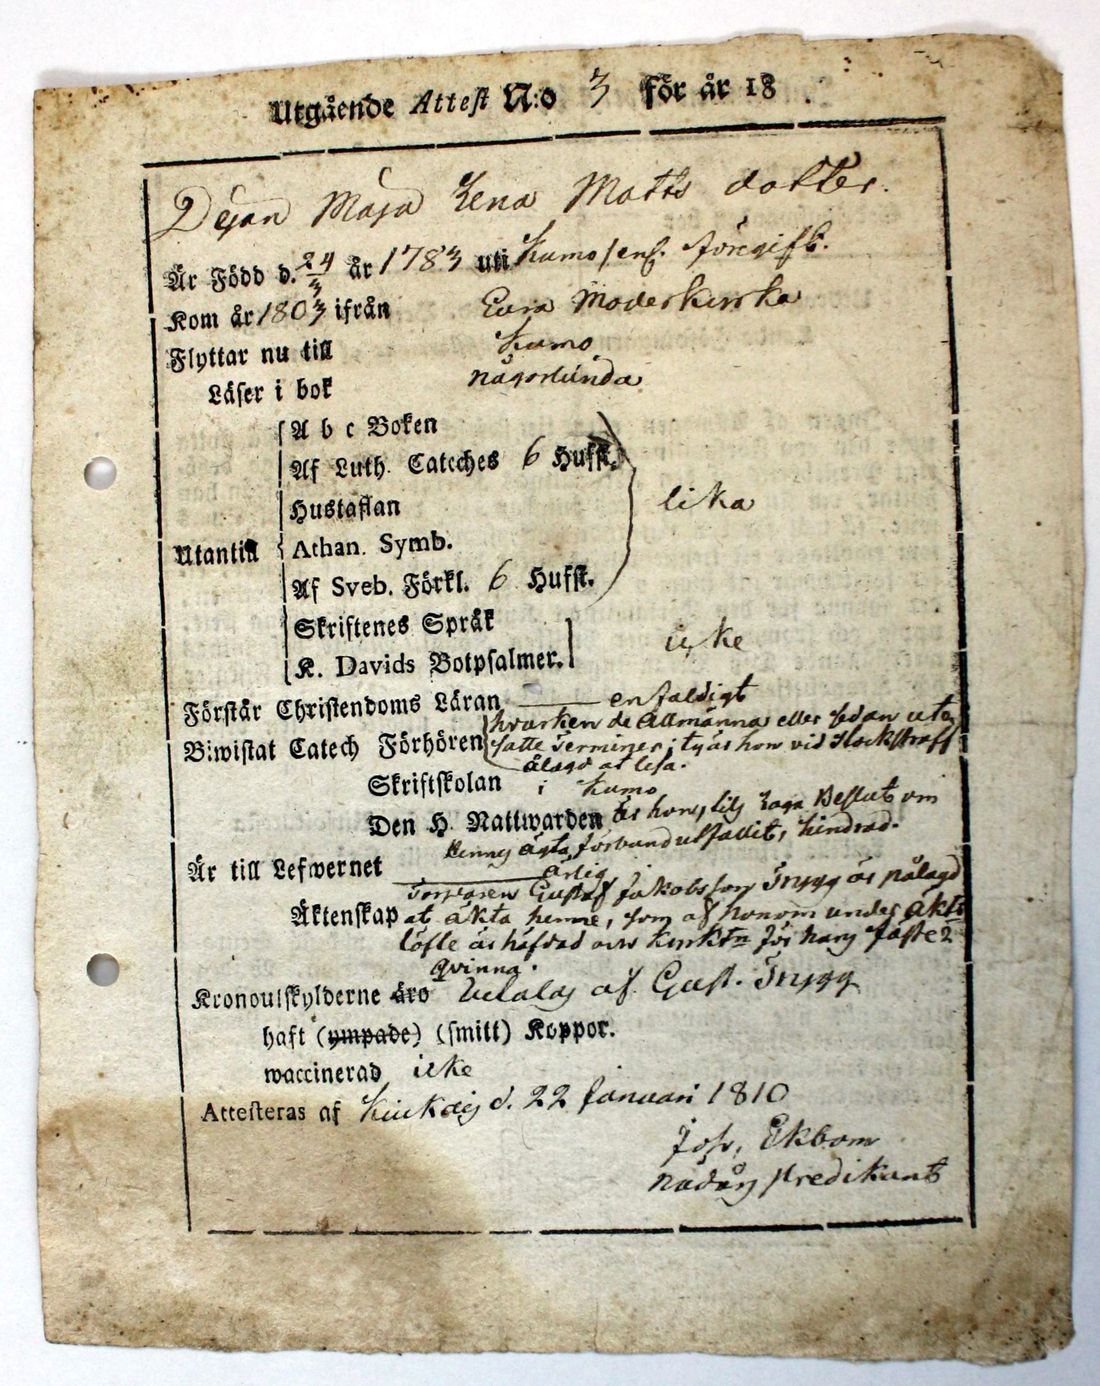 Utgående Attest N:o 3 för år 18
Pejan Maja Lena Matts dotter.
Är Född d. 24/3 år 1783 uti Kumo enl. föregift.
Kom år 1803 ifrån Eura Moderkirrka
Flyttar nu till Kumo
Läser i bok någorlunda
A b c Boken
Af Luth. Cateches 6 Hufst.
Hustaflan lika
Utantill Athan. Symb.
Af Sveb. Förkl. 6 Hufst.
Skriftenes Språk
icke
K. Davids Botpsalmer.
Förstår Christendoms Läran enfaldigt
hvarken de Allmänna eller sedan ute
Biwistat Catech Förhören satte Terminer; ty är hon vid Stockstraff
ålagd at läsa.
Skriftskolan i Kumo
Den H. Nattwarden är hon, til Laga Beslut om
hennes ägta förbund utfallit, hindrad.
Är till Lefwernet ärlig
Torparen Gustaf Jakobsson Trygg är pålagd
Äktenskap at äkta henne, som af honom under äkt
löfte är häfdad och för hans fäste
qvinna.
Kronoutskylderne äro betalas af Gust. Trygg
haft (ympade) (smitt) Koppor.
waccinerad icke
Attesteras af Kiukais d. 22 Januari 1810
Joh. Ekbom
Nådårs predikant